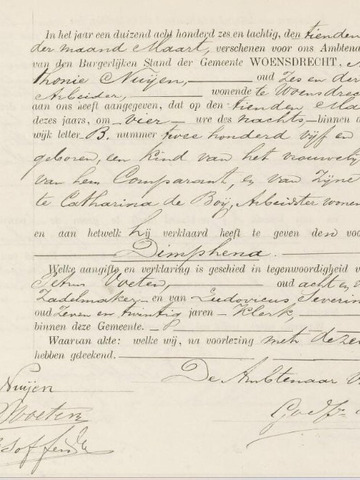 In het jaar een duizend acht honderd zes en tachtig, den tienden
der maand Maart, verschenen voor ons Ambtena
van den Burgerlijken Stand der Gemeente WOENSDRECHT,
thonie Nuijen, oud Zes en der
Arbeider, wonende te Woensdre
aan ons heeft aangegeven, dat op den tienden Maa
dezes jaars, om vier ure des nachts binnen d
wijk letter B. nummer twee honderd vijf en
geboren, een kind van het vrouwely
van hem Comparant, en van Zijne
te Catharina de Boij, Arbeidster wonen
en aan hetwelk hij verklaard heeft te geven den voo
Dimphena.
Welke aangifte en verklaring is geschied in tegenwoordigheid v
Petrus Voeten, oud acht en
Zadelmaker en van Ludovicus Severin
oud Zeven en twintig jaren Klerk,
binnen deze Gemeente.
Waarvan akte: welke wij, na voorlezing met de ze
hebben geteekend.
De Ambtenaar v
Nuijen
Voeten